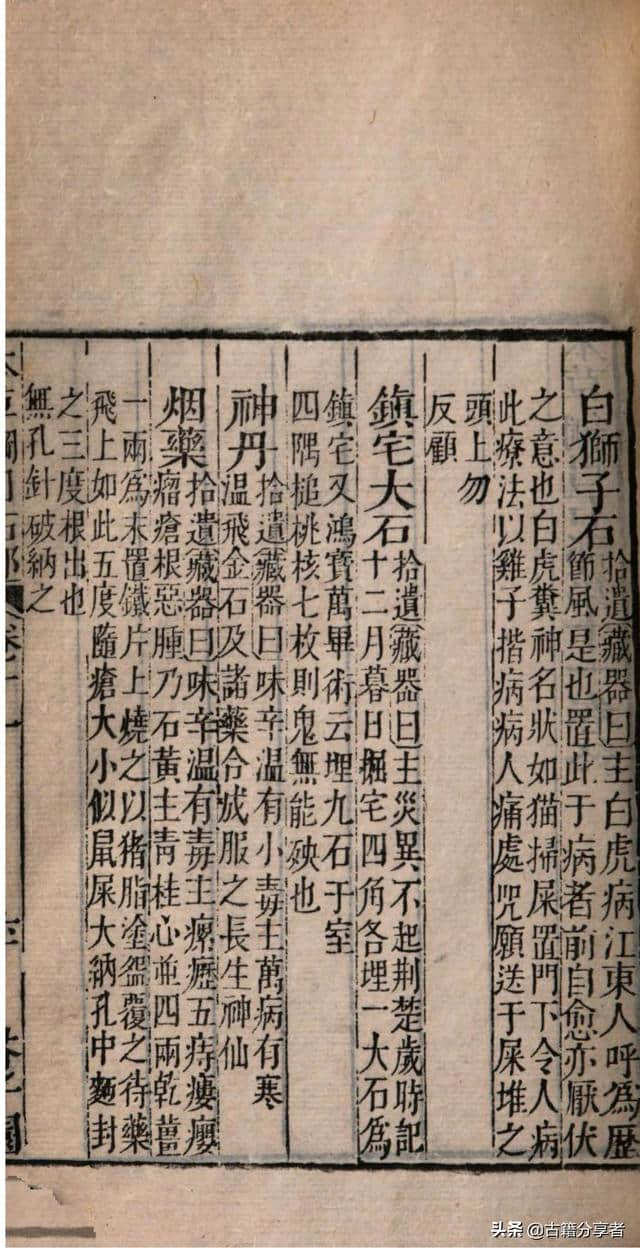 白獅子石 拾遺藏器曰主白虎病江東人呼爲歷
節風是也置此于病者前自愈亦厭伏
之意也白虎糞神名狀如猫掃屎置門下令人病
此療法以雞子揩病病人痛處咒願送于屎堆之
頭上勿
反顧
鎮宅大石 拾遺藏器曰主災異不起荆楚歲時記
十二月暮日掘宅四角各埋一大石爲
鎮宅又鴻寶萬畢術云埋九石于室
四隅槌桃核七枚則鬼無能殃也
神丹 拾遺藏器曰味辛温有小毒主萬病有寒
温飛金石及諸藥合成服之長生神仙
烟藥 拾遺藏器曰味辛温有毒主瘰癧五痔瘻癭
瘤瘡根惡腫乃石黃主靑桂心並四兩乾薑
一兩爲末置鐵片上燒之以猪脂塗盌覆之待藥
飛上如此五度隨瘡大小似鼠屎大納孔中麵封
之三度根出也
無孔針破納之
头条 @古籍分享者